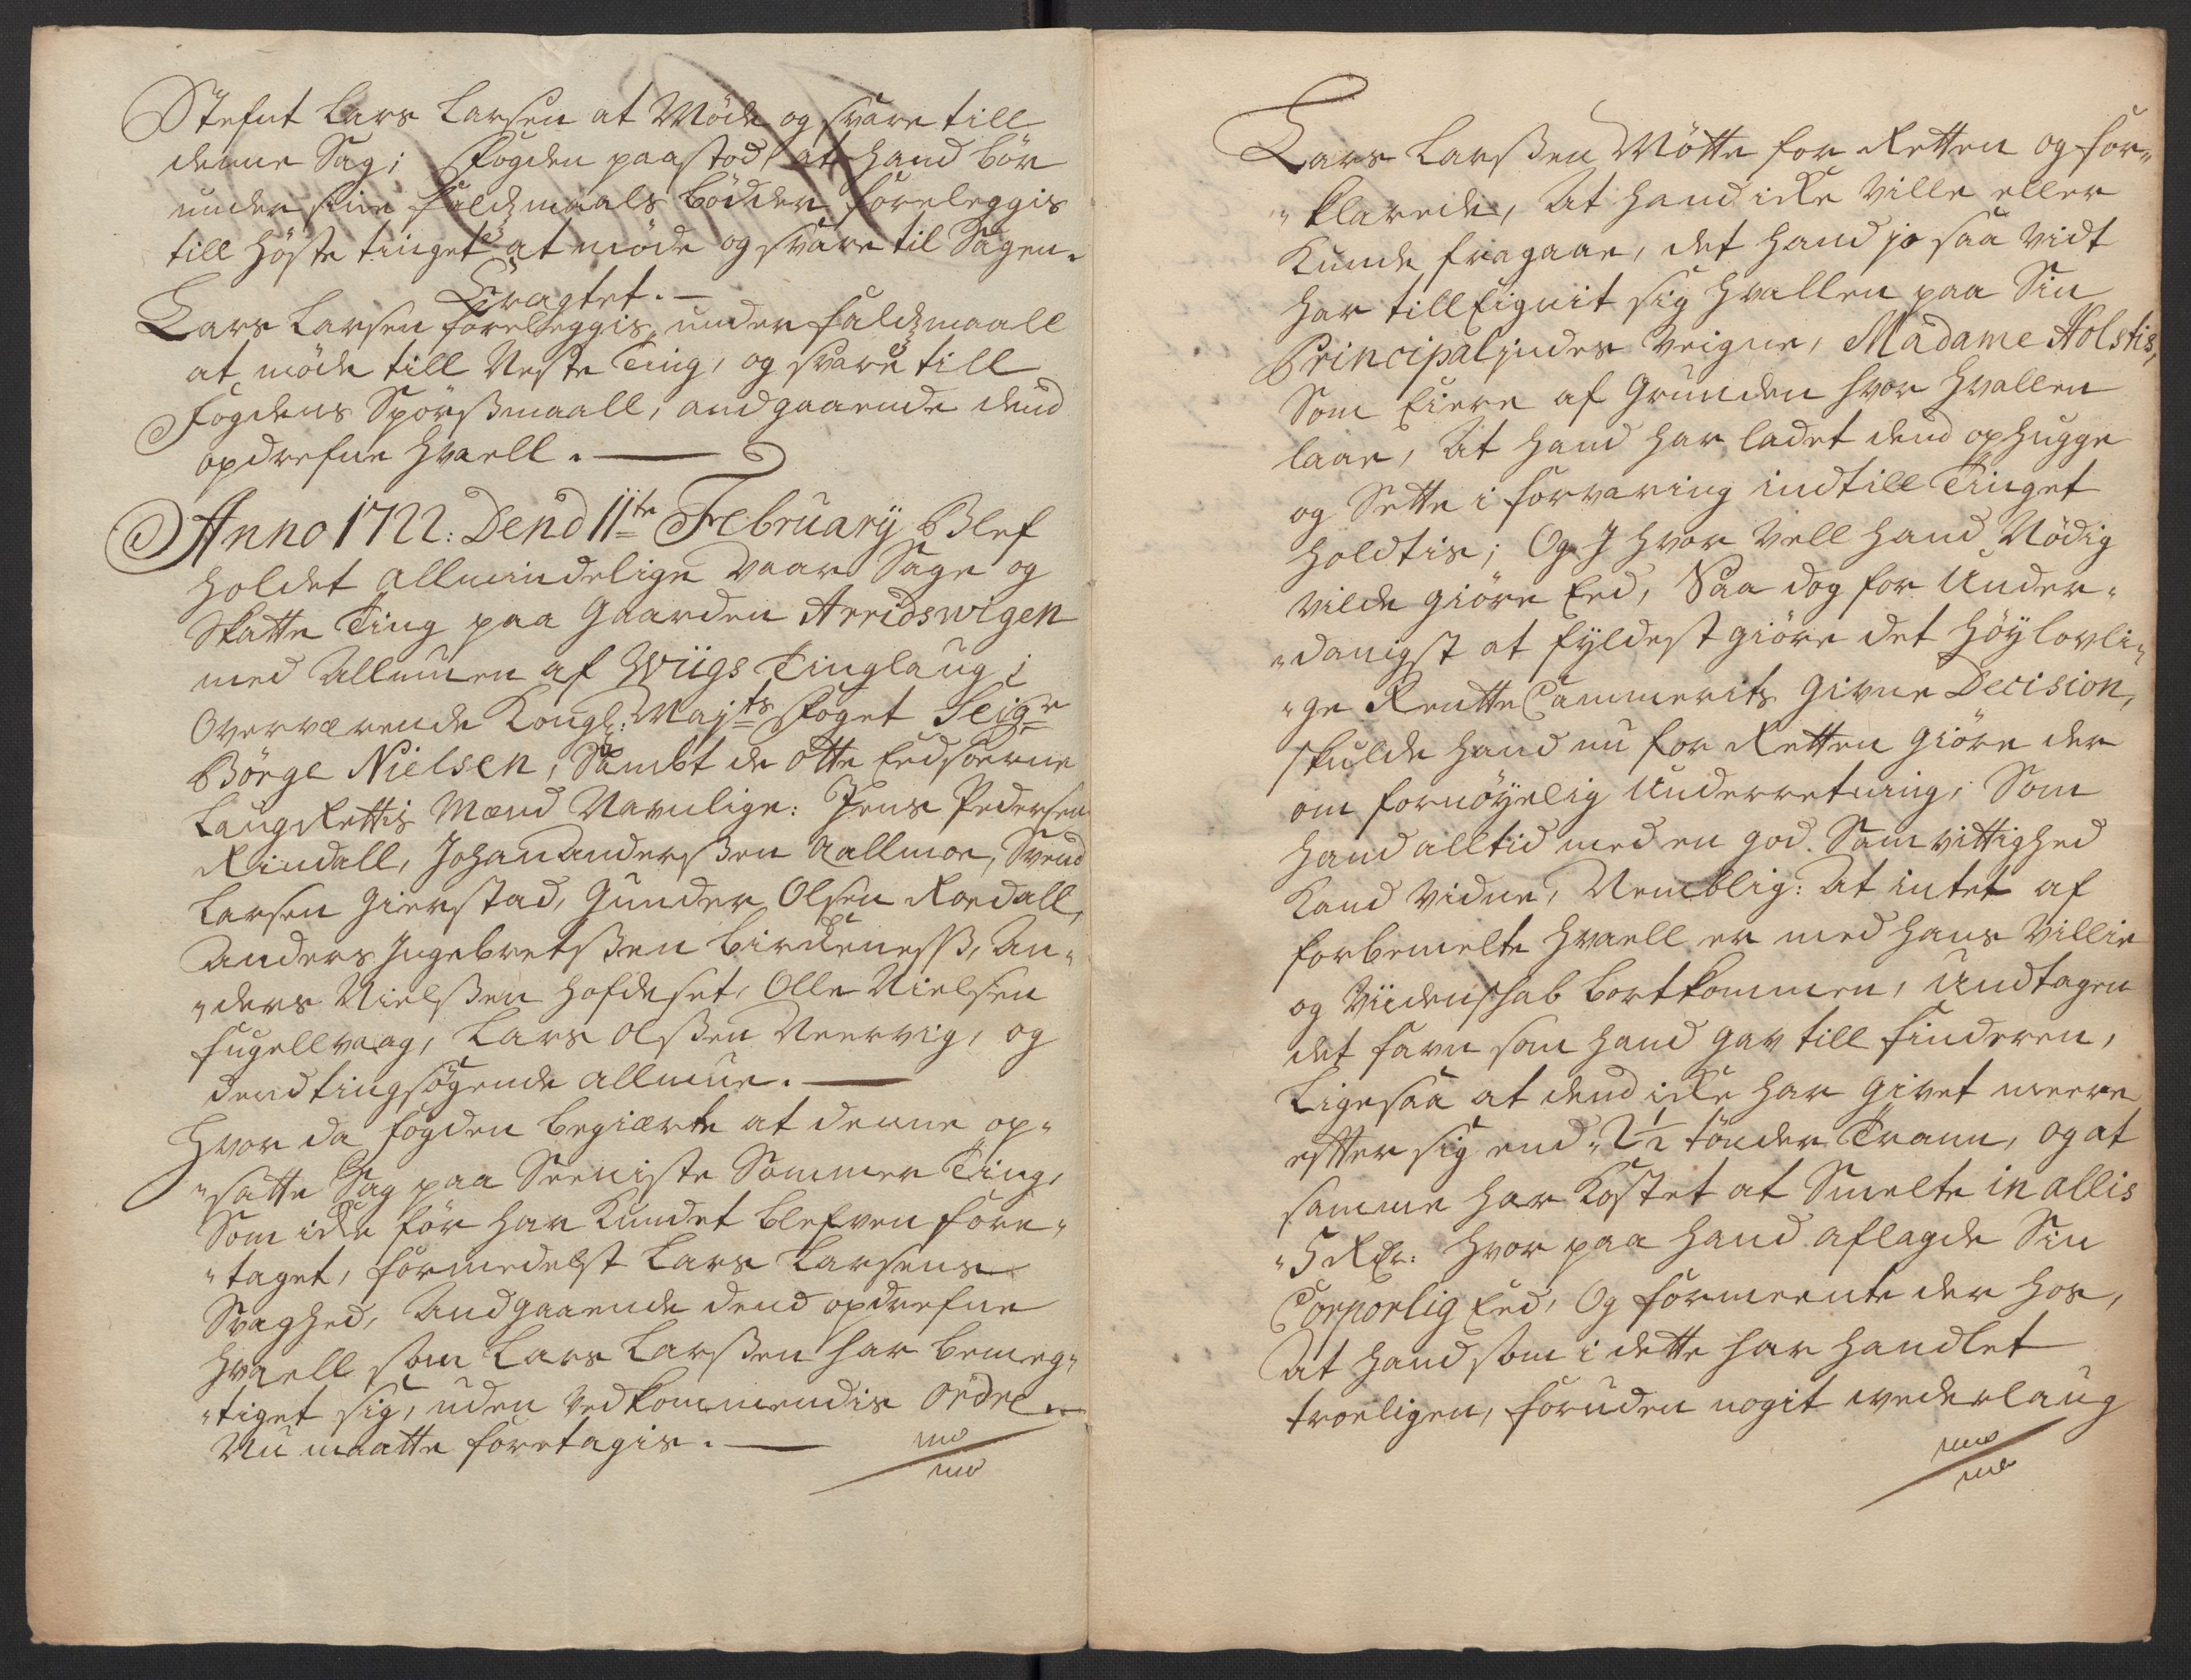 Stefnt Lars Larsen at Møde og svare till
denne Sag; Fogden paastod, at hand bør
under sine faldzmaals bødder foreleggis
till Høste tinget at møde og svare til Sagen.
Eragtet.
Lars Larsen foreleggis under faldzmaall
at møde till Neste Ting, og svare till
Fogdens Spørssmaall, andgaaende dend
opdrefne Hvaell.
Anno 1722: Dend 11te February Blef
holdet allmindelige Vaar Sage og
Skatte Ting paa Gaarden Arridswigen
med Allmuen af Wiigs Tinglaug i
Overværende Kongl: Mayts Foget Seigr
Börge Nielsen, Sambt de otte Eedsorne
LaugRettis Mænd Navnlige: Jens Pedersen
Rindall, Johan Anderssen Aallmoe, Svend
Larsen Gierstad, Gunder Olsen Roedall,
Anders Ingebretssen Birckeness, An-
"ders Nielssen Hofdeset, Olle Nielsen
Fugellvaag, Lars Olssen Neervig, og
dend tingsøgende allmue.
Hvor da fogden begiærte at denne op-
"satte Sag paa Seeniste Sommer Ting,
Som icke før har kundet blefven fore-
"taget, formedelst Lars Larsens
Svaghed, Andgaaende dend opdrefne
Hvaell som Lars Larssen har bemeg-
"tiget sig, uden Vedkommendis ordre
Nu maatte foretagis.
Lars Larssen Møtte for Retten og for-
"klarede, At hand icke ville eller
kunde fragaae, det hand jo saa vidt
har till Eignit sig Hvallen paa Sin
Principalindes Veigne, Madame Holstis,
Som Eiere af Grunden hvor Hvallen
laae, At hand har ladet dend ophugge
og Sette i forvaring indtill Tinget
holdtis; Og I hvor vell hand Nødig
vilde giøre Eed, Saa dog for Under-
"danigst at fyldest giøre det Høylovli-
"ge RentteCammerits givne Decision,
skulde hand nu for Retten giøre der
om fornøyelig Underretning, Som
hand alltid med en god Samvittighed
kand vidne, Nemblig: At intet af
forbemelte Hvaell er med hans villie
og Viidenskab bortkommen, undtagen
det favn som hand gav till finderen,
Ligesaa at dend icke har givet meere
effter sig end 2½ tønder Trann, og at
samme har kostet at Smelte in allis
"5 Rdr: Hvor paa hand aflagde Sin
Corporlig Eed, Og formeente der hos,
At hand som i dette har handlet
troeligen, foruden nogit wederlaug